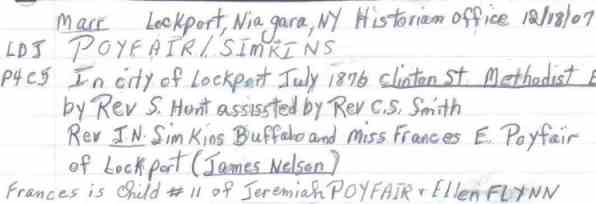 Marr Lockport, Niagara, NY Historian Office 12/18/07
LDJ POYFAIR / SIMKINS
P4C5 In city of Lockport July 1876 Clinton St. Methodist E
by Rev S. Hunt assissted by Rev C.S. Smith
Rev J.N. Simkins Buffalo and Miss Frances E. Poyfair
of Lockport (James Nelson)
Frances is Child #11 of Jeremiah POYFAIR + Ellen FLYNN